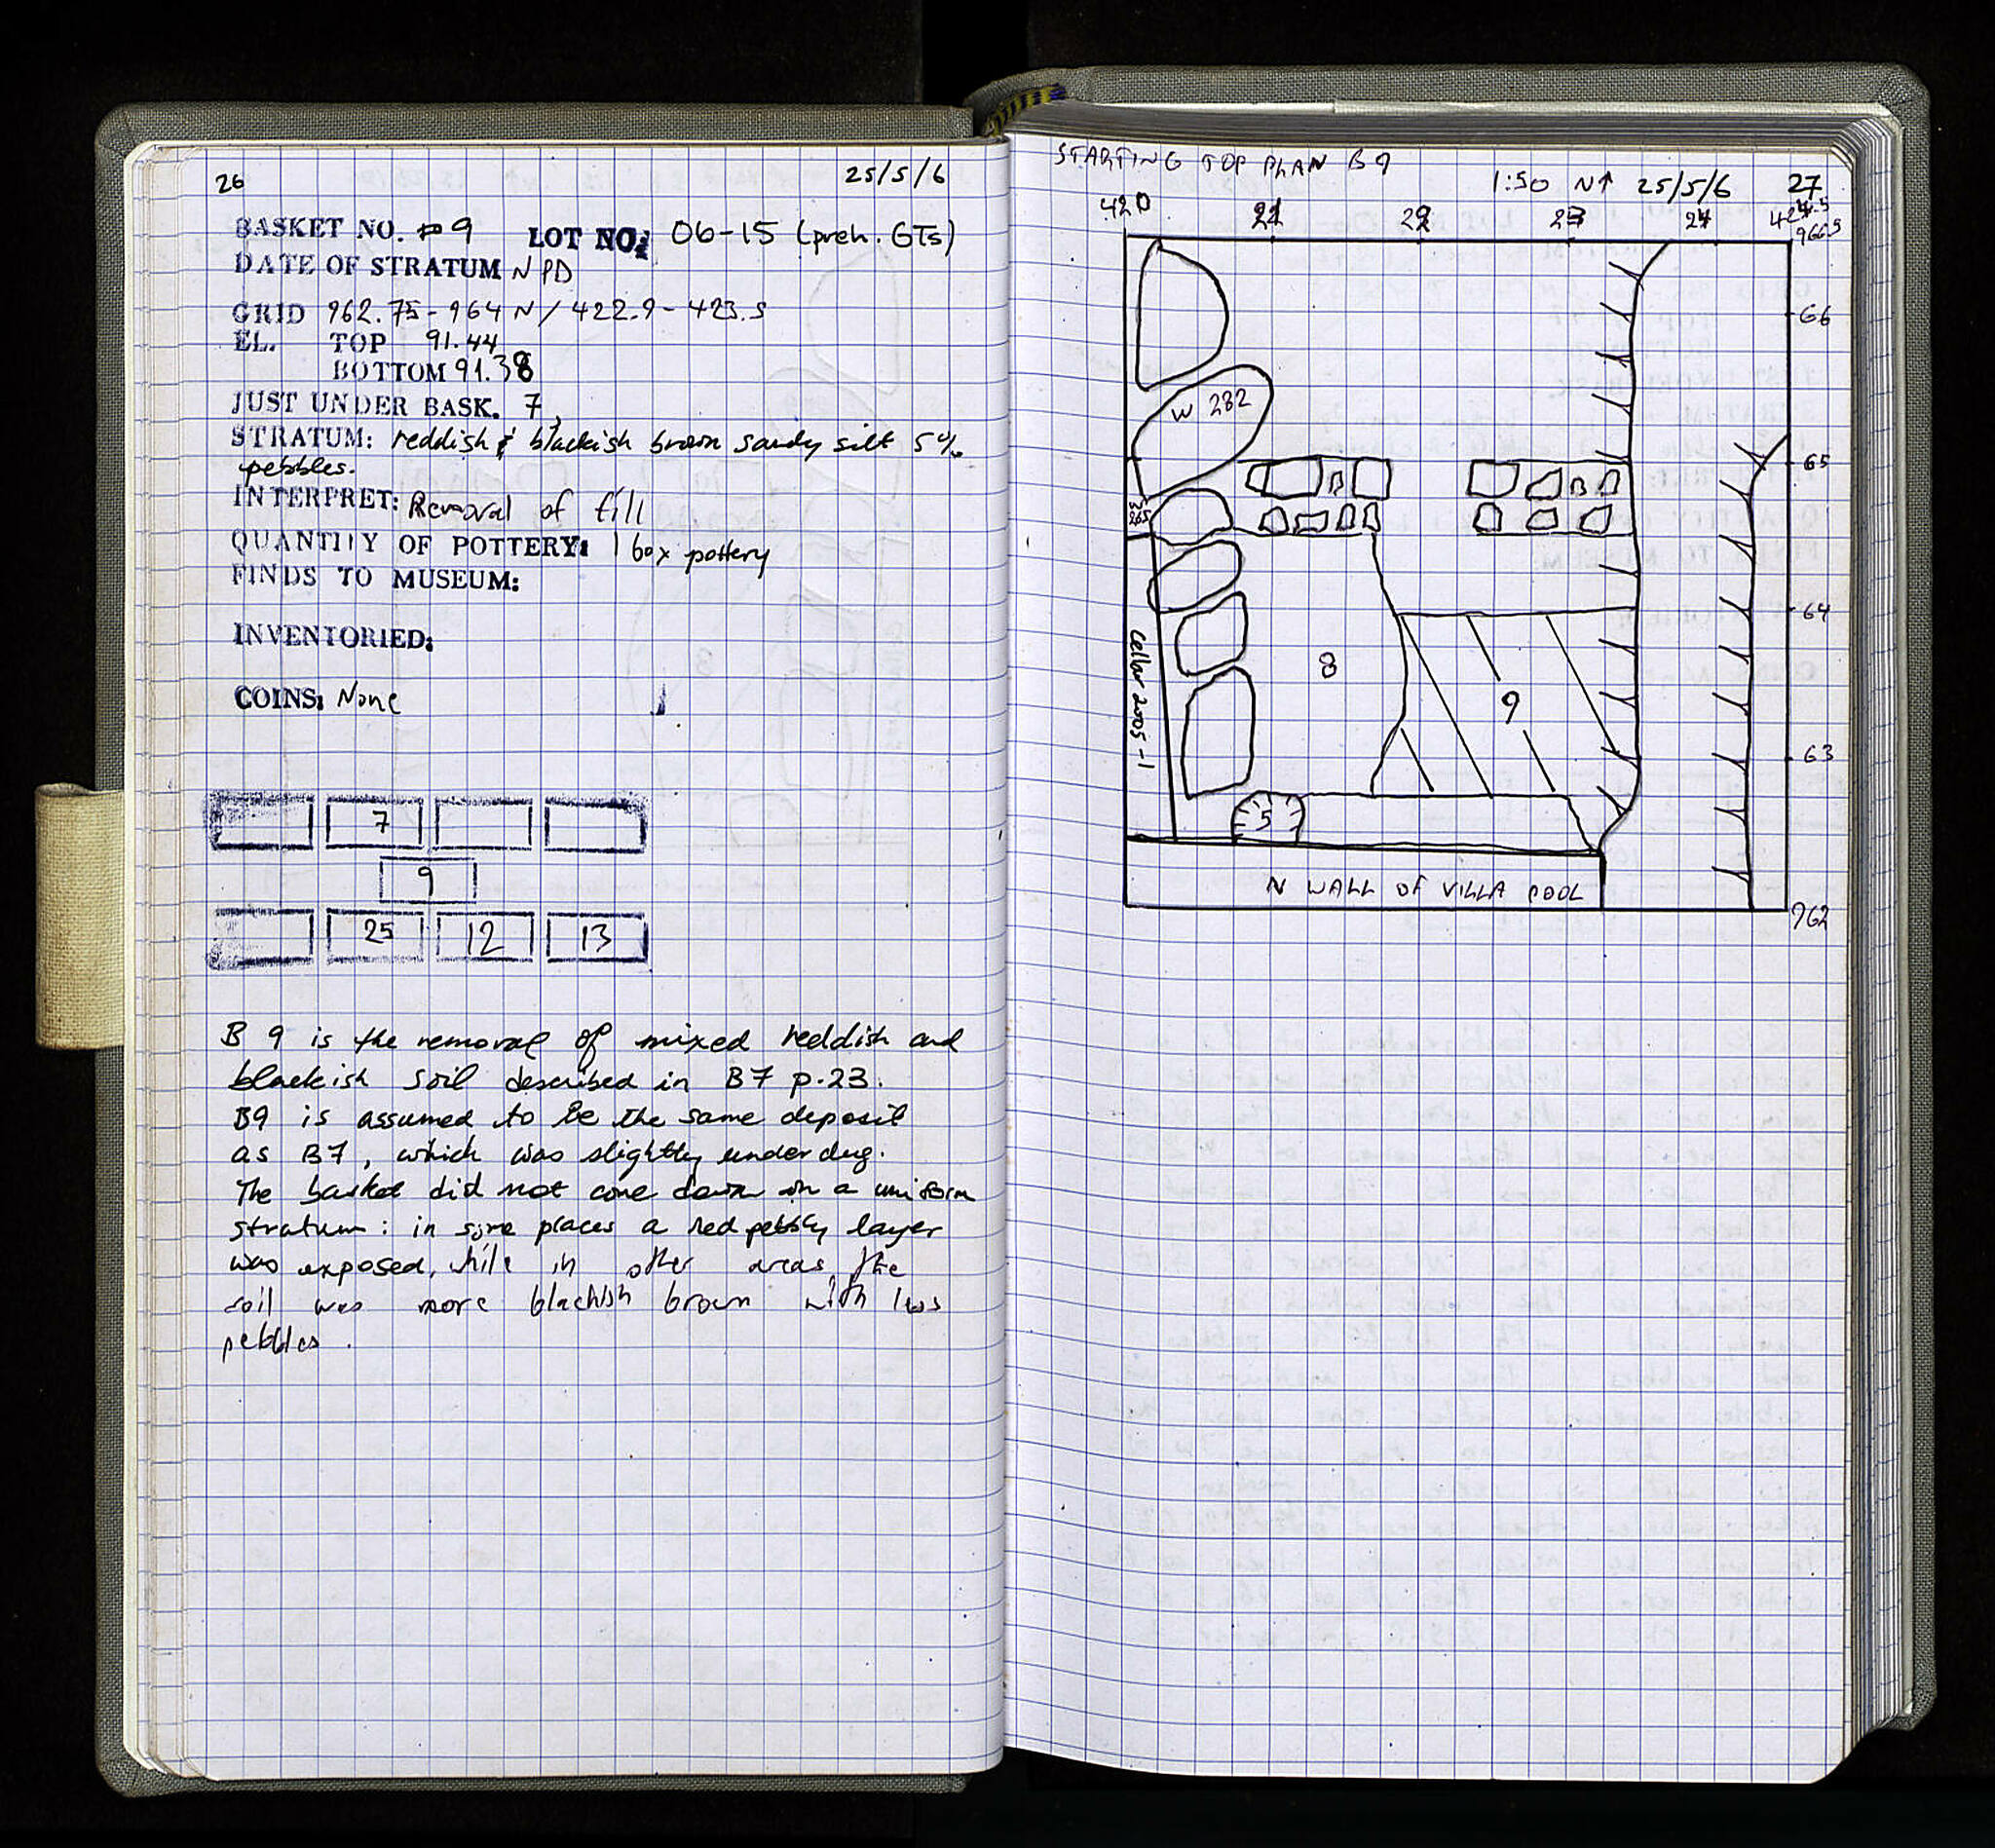 26
25/5/6
BASKET NO. 9 LOT NO: 06-15 (preh. GTs)
DATE OF STRATUM NPD
GRID 962.75-964 N/422.9-423.5
EL. TOP 91.44
BOTTOM 91.38
JUST UNDER BASK. 7,
STRATUM: reddish & blackish brown sandy silt 5%
pebbles.
INTERPRET: Removal of fill
QUANTITY OF POTTERY: 1 box pottery
FINDS TO MUSEUM:
INVENTORIED:
COINS: None
7
9
25 12 13
B 9 is the removal of mixed reddish and
blackish soil described in B7 p.23.
B9 is assumed to be the same deposit
as B7, which was slightly under dug.
The basket did not come down on a uniform
stratum: in some places a red pebbly layer
was exposed, while in other areas the
soil was more blackish brown with less
pebbles.
STARTING TOP PLAN B9
1:50 N↑ 25/5/6 27
420 21 22 23 24 424.5
966.5
66
W 282
65
64
Cellar 2005-1
8
9
63
5
N WALL OF VILLA POOL
962